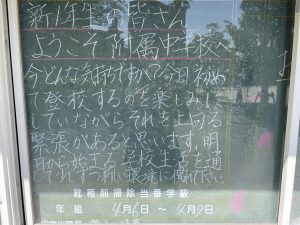 新1年生の皆さん
ようこそ附属中学校へ
今どんな気持ちですか?今日初め
て登校するのを楽しみに
していながらそれを上回る
緊張があると思います。明
日から始まる学校生活を通
して少しずつ新しい環境に慣れてい
靴箱前掃除当番学級
年 組 4月6日 〜 4月9日